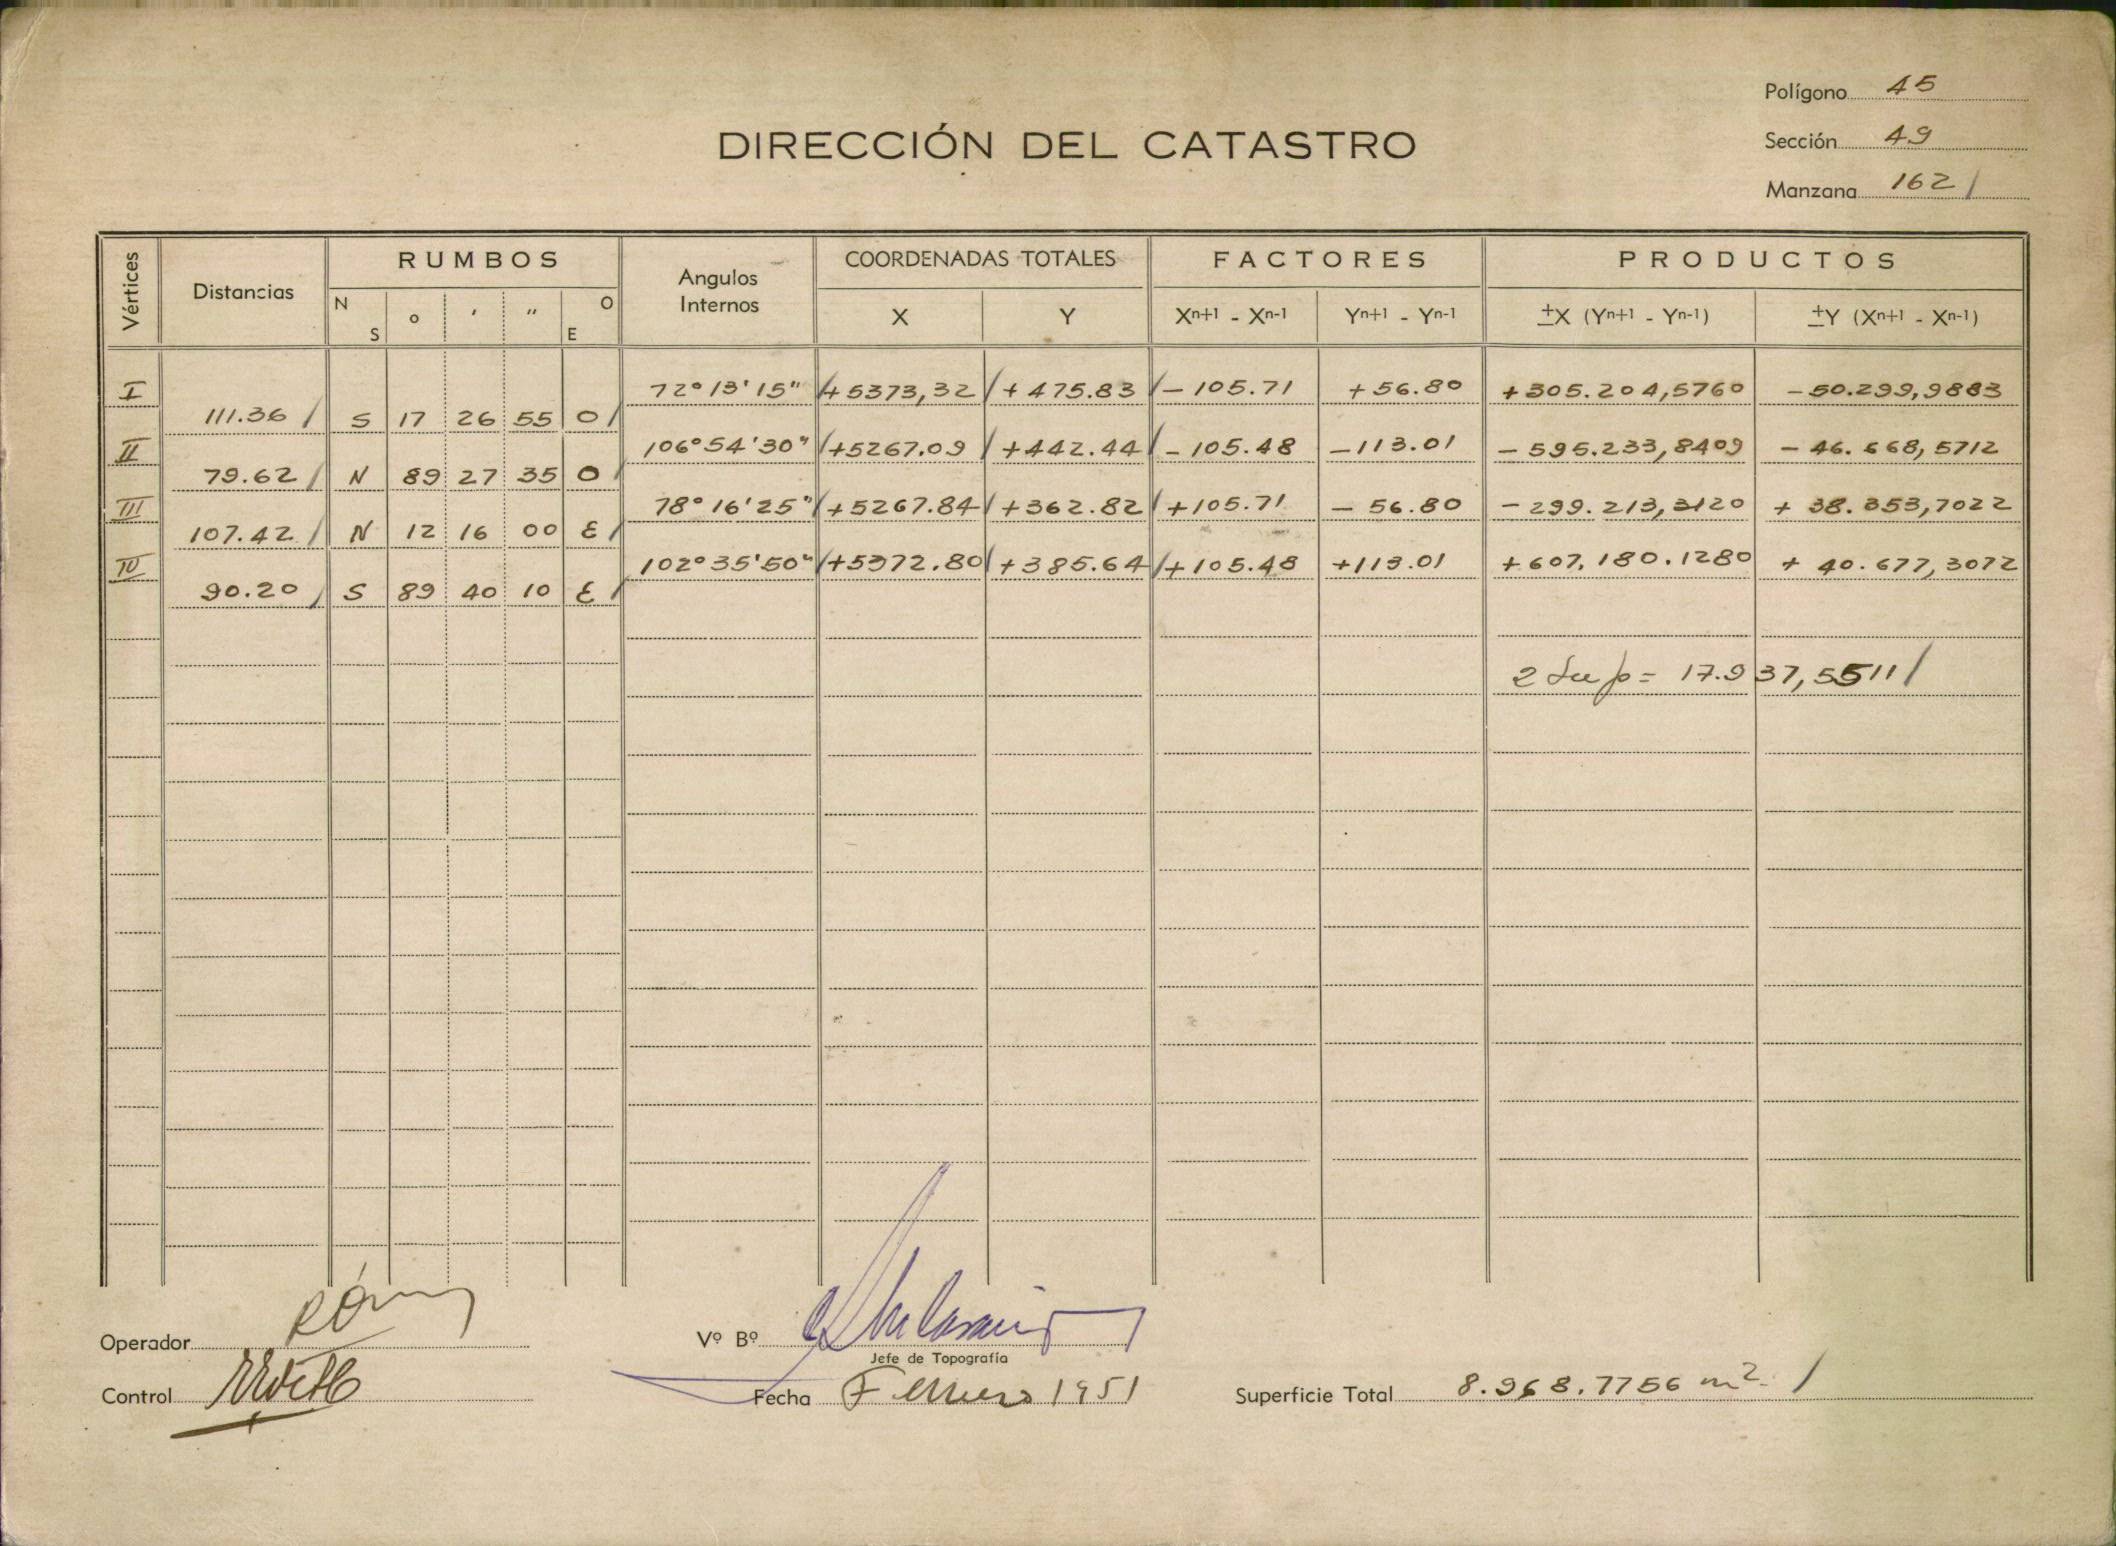 Polígono 45
DIRECCIÓN DEL CATASTRO
Sección 49
Manzana 162 /
Vértices Distancias RUMBOS Angulos Internos COORDENADAS TOTALES FACTORES PRODUCTOS
N S ° ' " O E X Y Xn+1 - Xn-1 Yn+1 - Yn-1 ±X (Yn+1 - Yn-1) ±Y (Xn+1 - Xn-1)
I 72° 13' 15" / +5373,32 / +475.83 / -105.71 +56.80 +305.204,5760 -50.299,9883
111.36 / S 17 26 55 O /
II 106° 54' 30" / +5267.09 / +442.44 / -105.48 -113.01 -595.233,8409 -46.668,5712
79.62 / N 89 27 35 O /
III 78° 16' 25" / +5267.84 / +362.82 / +105.71 -56.80 -299.213,3120 +38.353,7022
107.42 / N 12 16 00 E /
IV 102° 35' 50" / +5372.80 / +385.64 / +105.48 +113.01 +607.180.1280 +40.677,3072
90.20 / S 89 40 10 E /
2 Sup = 17.937,5511 /
Operador
Vº Bº
Jefe de Topografía
Control
Fecha Febrero 1951
Superficie Total 8.968.7756 m2. /